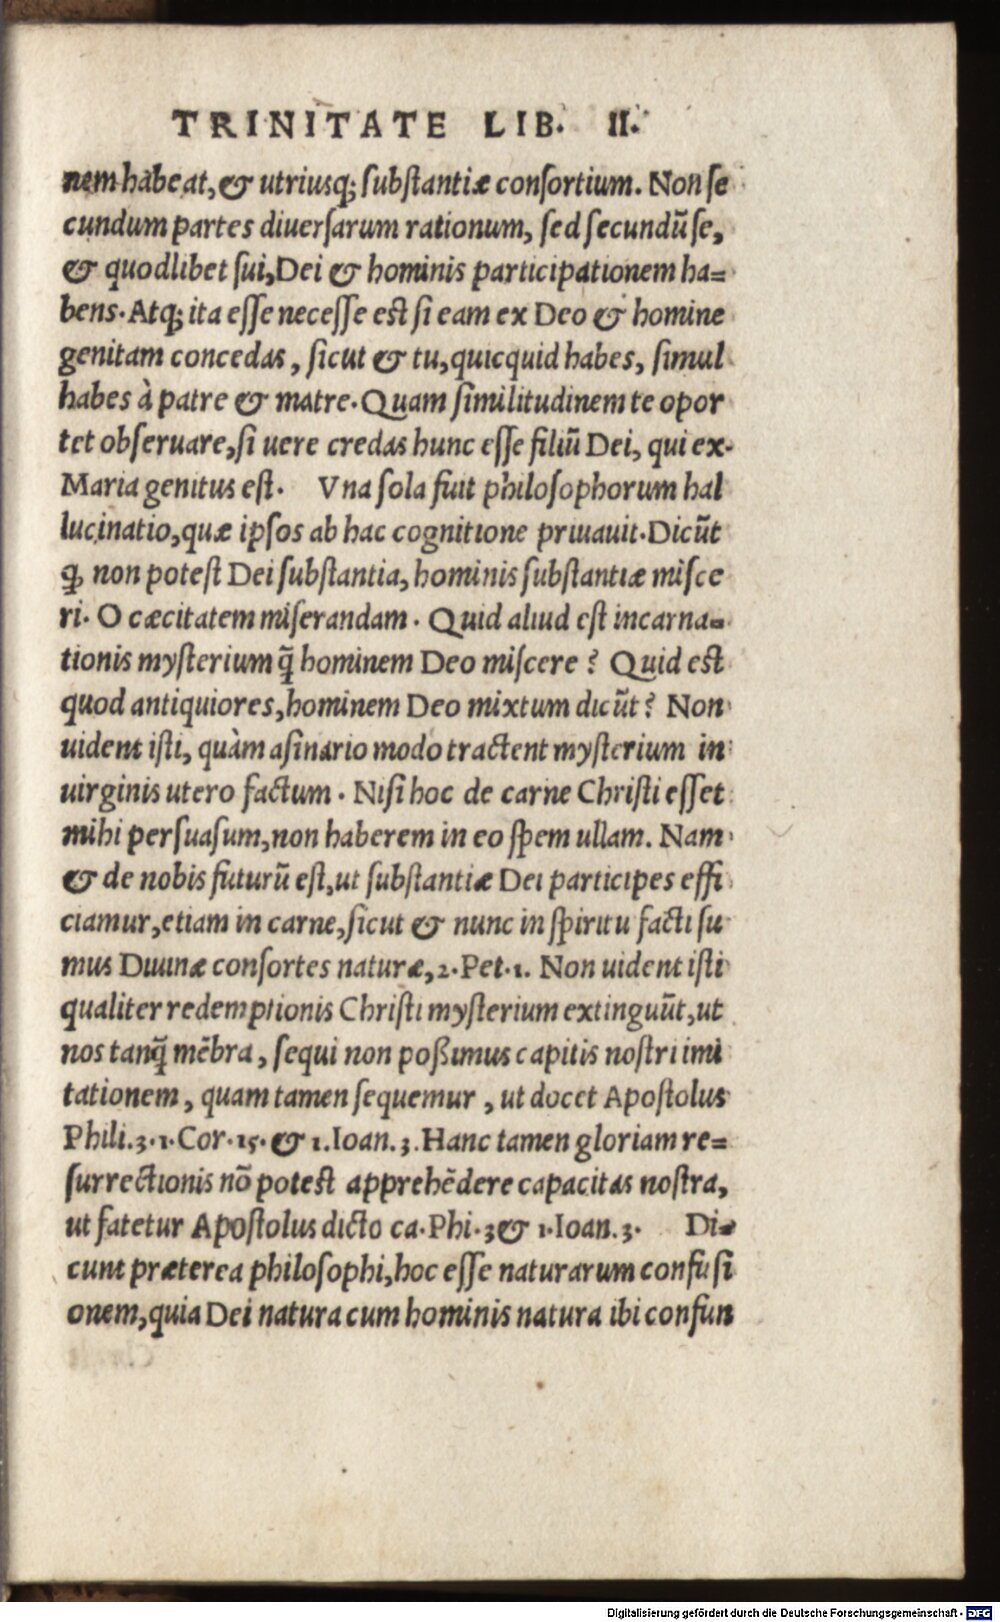 TRINITATE LIB. II.
nem habeat, & utriusq; substantiæ consortium. Non se
cundum partes diuersarum rationum, sed secundũ se,
& quodlibet sui, Dei & hominis participationem ha=
bens. Atq; ita esse necesse est si eam ex Deo & homine
genitam concedas, sicut & tu, quicquid habes, simul
habes à patre & matre. Quam similitudinem te opor
tet obseruare, si uere credas hunc esse filiũ Dei, qui ex
Maria genitus est. Vna sola fuit philosophorum hal
lucinatio, quæ ipsos ab hac cognitione priuauit. Dicũt
ꝙ non potest Dei substantia, hominis substantiæ misce
ri. O cæcitatem miserandam. Quid aliud est incarna=
tionis mysterium q̃ hominem Deo miscere? Quid est
quod antiquiores, hominem Deo mixtum dicũt? Non
uident isti, quàm asinario modo tractent mysterium in
uirginis utero factum. Nisi hoc de carne Christi esset
mihi persuasum, non haberem in eo spem ullam. Nam
& de nobis futurũ est, ut substantiæ Dei participes effi
ciamur, etiam in carne, sicut & nunc in spiritu facti su
mus Diuinæ consortes naturæ, 2. Pet. 1. Non uident isti
qualiter redemptionis Christi mysterium extinguũt, ut
nos tanq̃ mẽbra, sequi non poßimus capitis nostri imi
tationem, quam tamen sequemur, ut docet Apostolus
Phili. 3. 1. Cor. 15. & 1. Ioan. 3. Hanc tamen gloriam re=
surrectionis nõ potest apprehẽdere capacitas nostra,
ut fatetur Apostolus dicto ca. Phi. 3 & 1. Ioan. 3. Di=
cunt præterea philosophi, hoc esse naturarum confusi
onem, quia Dei natura cum hominis natura ibi confun
Digitalisierung gefördert durch die Deutsche Forschungsgemeinschaft - DFG